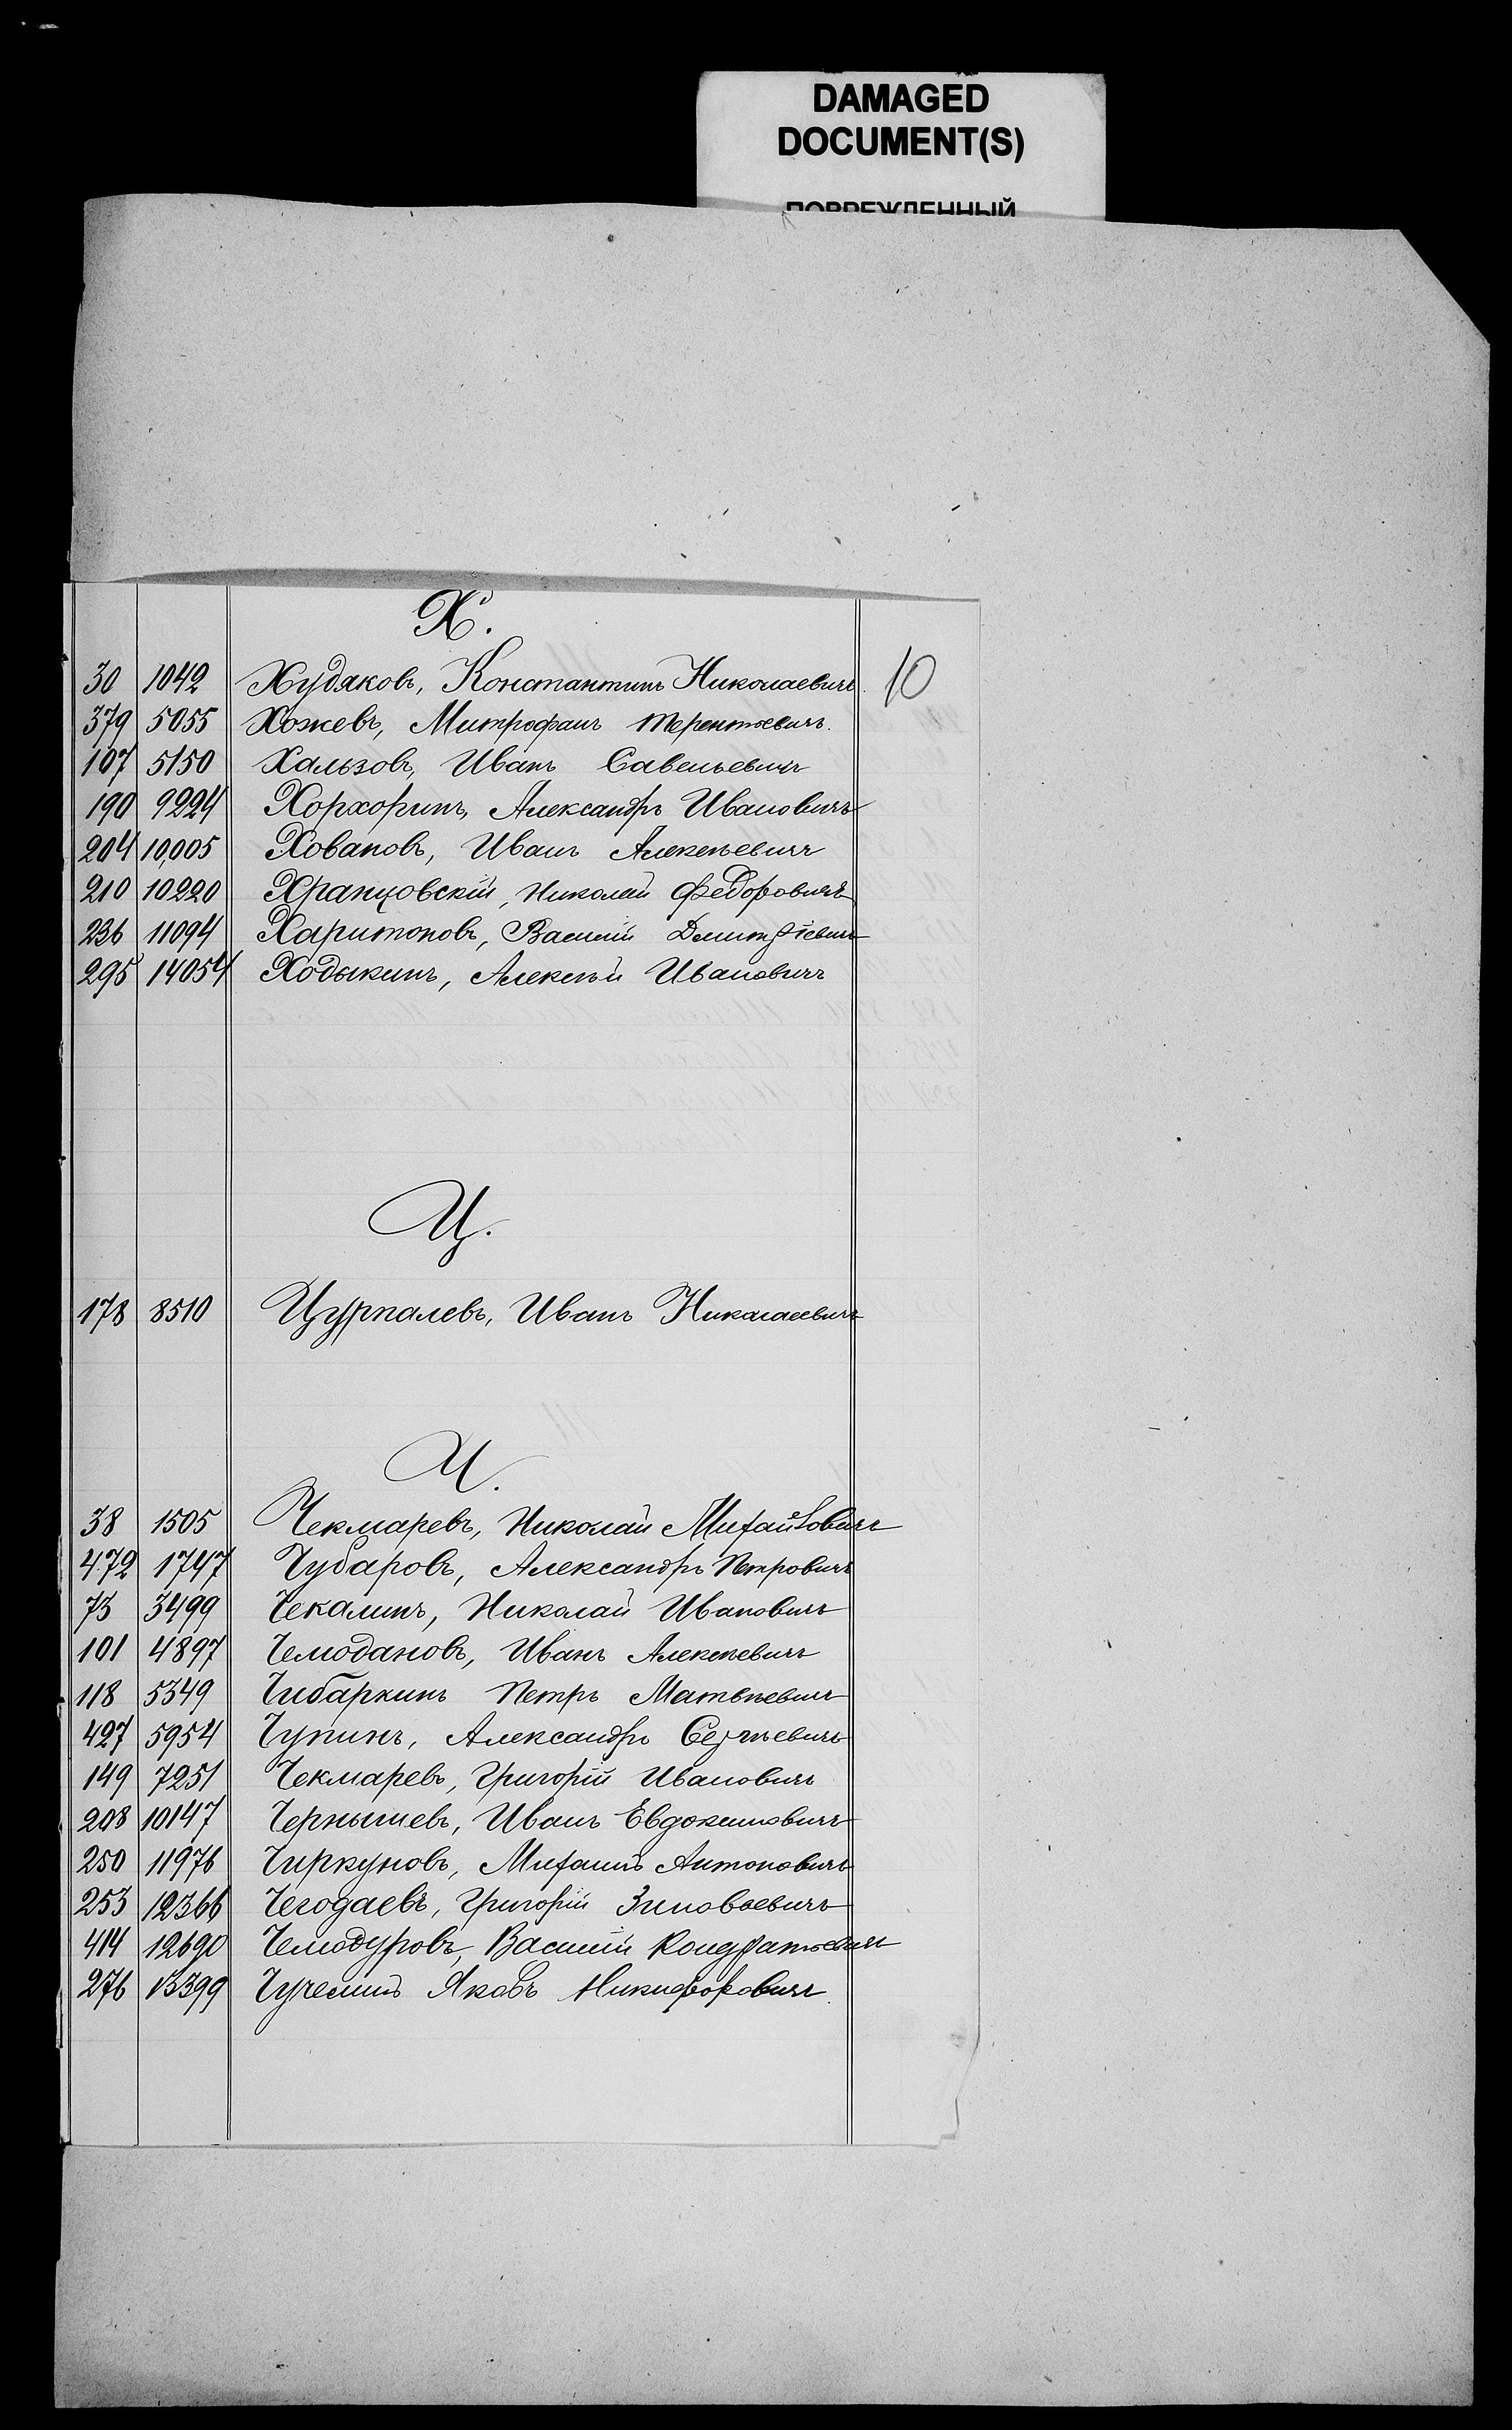 DAMAGED
DOCUMENT(S)
ПОВРЕЖДЕННЫЙ
Х.
10
30 1042 Худяковъ, Константинъ Николаевичъ.
379 5055 Хожевъ, Митрофанъ Терентьевичъ.
107 5150 Хальзовъ, Иванъ Савельевичъ
190 9224 Хорхоринъ, Александръ Ивановичъ
204 10,005 Ховановъ, Иванъ Алексѣевичъ
210 10220 Хранцовскій, Николай Федоровичъ
236 11094 Харитоновъ, Василій Дмитріевичъ
295 14054 Ходыкинъ, Алексѣй Ивановичъ
Ц.
178 8510 Цурпалевъ, Иванъ Николаевичъ
Ч.
38 1505 Чекмаревъ, Николай Михайловичъ
472 1747 Чубаровъ, Александръ Петровичъ
73 3499 Чекалинъ, Николай Ивановичъ
101 4897 Чемодановъ, Иванъ Алексѣевичъ
118 5349 Чибаркинъ Петръ Матвѣевичъ
427 5954 Чупинъ, Александръ Сергѣевичъ
149 7251 Чекмаревъ, Григорій Ивановичъ
208 10147 Чернышевъ, Иванъ Евдокимовичъ
250 11976 Чиркуновъ, Михаилъ Антоновичъ
253 12366 Чегодаевъ, Григорій Зиновьевичъ
414 12690 Чемодуровъ, Василій Кондратьевичъ
276 13399 Яковъ Никифоровичъ.